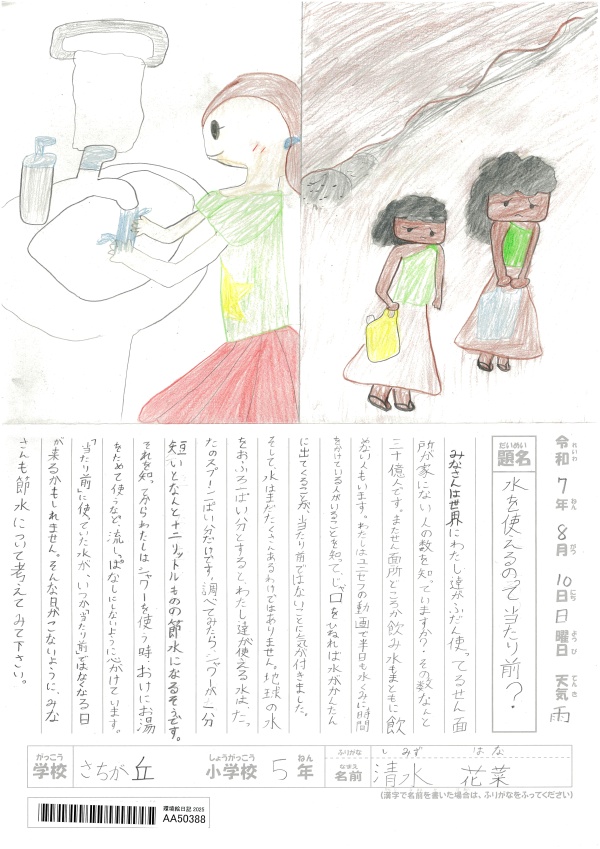 令和7年8月10日日曜日 天気 雨
れいわ ねん がつ にち ようび てんき
だいめい
題名
水を使えるのって当たり前?
みなさんは世界にわたし達がふだん使ってるせん面
所が家にない人の数を知っていますか?その数なんと
三十億人です。またせん面所どころか飲み水もまともに飲
めない人もいます。わたしはユニセフの動画で半日も水くみに時間
をかけている人がいることを知って、じゃ口をひねれば水がかんたん
に出てくることが、当たり前ではないことに気が付きました。
そして、水はまだたくさんあるわけではありません。地球の水
をおふろ一ぱい分とすると、わたし達が使える水は、たっ
たのスプーン一ぱい分だけです。調べてみたら、シャワーが一分
短いとなんと十二リットルもの節水になるそうです。
それを知ってからわたしはシャワーを使う時、おけにお湯
をためて使うなど、流しっぱなしにしないように心がけています。
「当たり前」に使っていた水が、いつか「当たり前」ではなくなる日
が来るかもしれません。そんな日がこないように、みな
さんも節水について考えてみて下さい。
がっこう
学校 さちが丘
しょうがっこう ねん
小学校 5年
ふりがな しみず はな
なまえ
名前 清水 花菜
(漢字で名前を書いた場合は、ふりがなをふってください)
環境絵日記 2025
AA50388